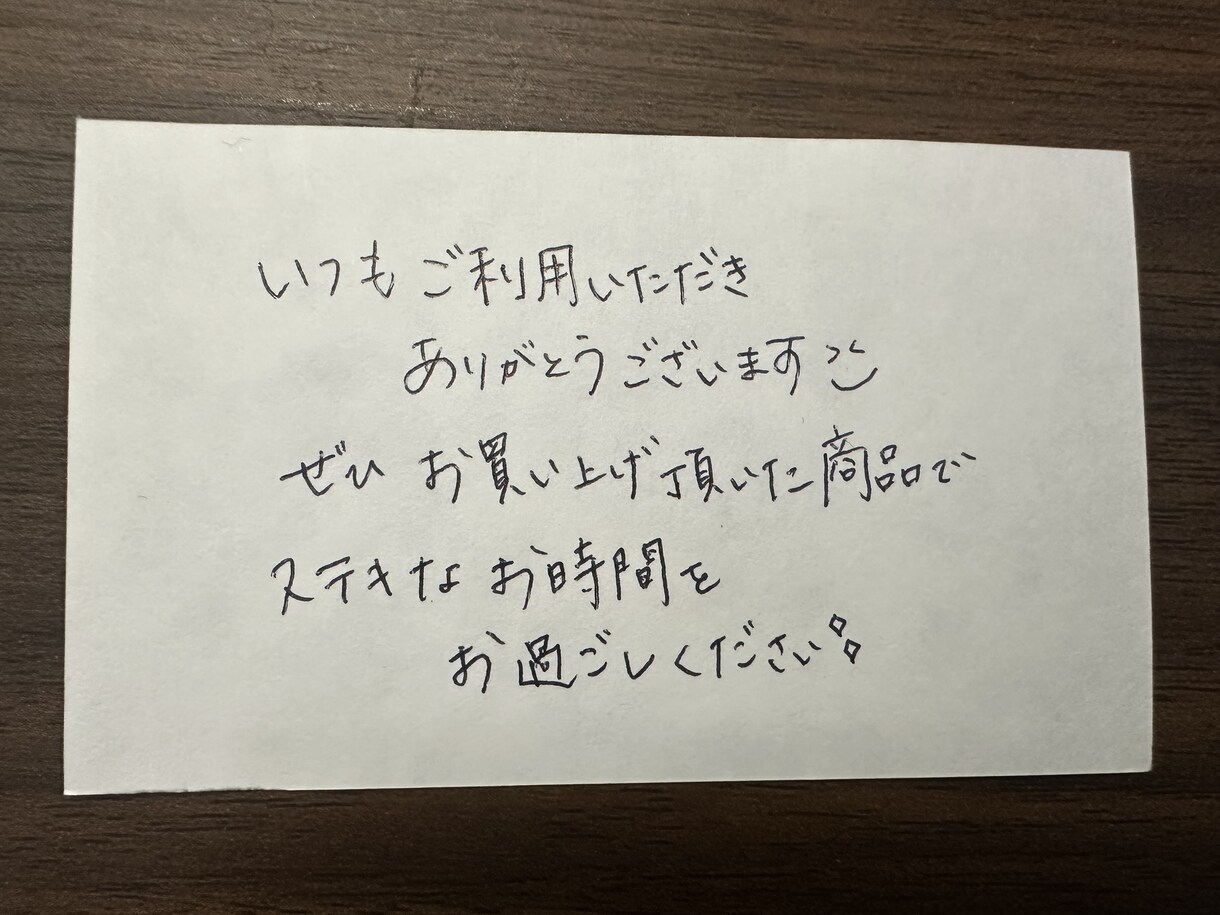 いつもご利用いただき
ありがとうございます
ぜひ お買い上げ頂いた商品で
ステキなお時間を
お過ごしください